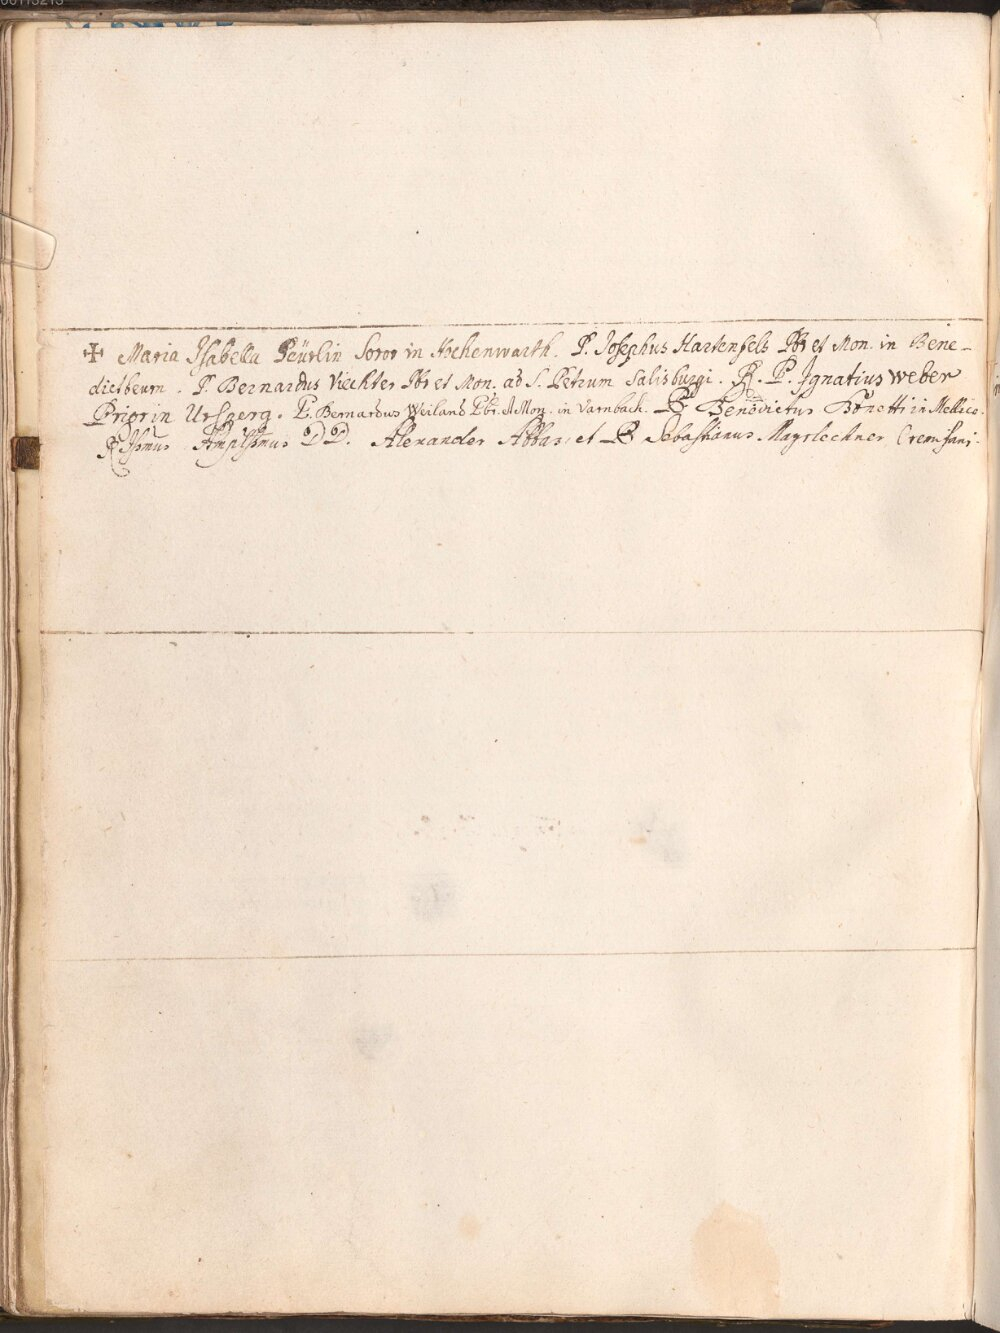 ✠ Maria Isabella Peürlin Soror in Hochenwarth. P. Josephus Hartenfels Pbr et Mon. in Bene-
dictbeurn. P. Bernardus Viechter Pbr et Mon. ad S. Petrum Salisburgi. R. P. Ignatius Weber
Prior in Ursperg. P. Bernardus Weiland Pbr. et Mon. in Varnbach. P. Benedictus Bonetti in Mellico.
Rssmus Amplssmus DD. Alexander Abbas et P. Sebastianus Mayrlechner Cremifani.